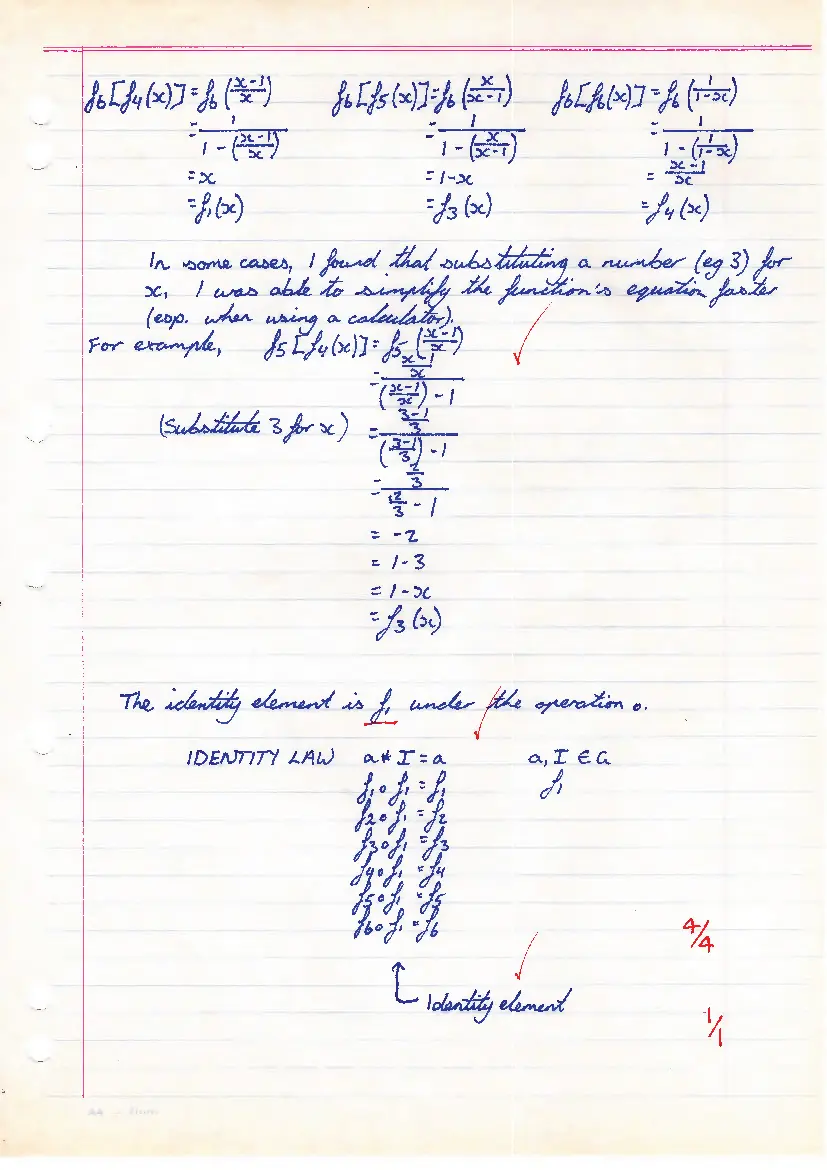 f6[f4(x)] = f6((x-1)/x) f6[f5(x)] = f6(x/(x-1)) f6[f6(x)] = f6(1/(1-x))
= 1/(1-((x-1)/x)) = 1/(1-(x/(x-1))) = 1/(1-(1/(1-x)))
= x = 1-x = (x-1)/x
= f1(x) = f3(x) = f4(x)
In some cases, I found that substituting a number (eg 3) for
x, I was able to simplify the function's equation faster
(esp. when using a calculator).
For example, f5[f4(x)] = f5((x-1)/x)
= ((x-1)/x)/(((x-1)/x)-1)
(Substitute 3 for x) = ((3-1)/3)/(((3-1)/3)-1)
= (2/3)/(2/3 - 1)
= -2
= 1-3
= 1-x
= f3(x)
The identity element is f1 under the operation o.
IDENTITY LAW a * I = a a, I ∈ G
f1 o f1 = f1 f1
f2 o f1 = f2
f3 o f1 = f3
f4 o f1 = f4
f5 o f1 = f5
f6 o f1 = f6
4/4
Identity element
1/1